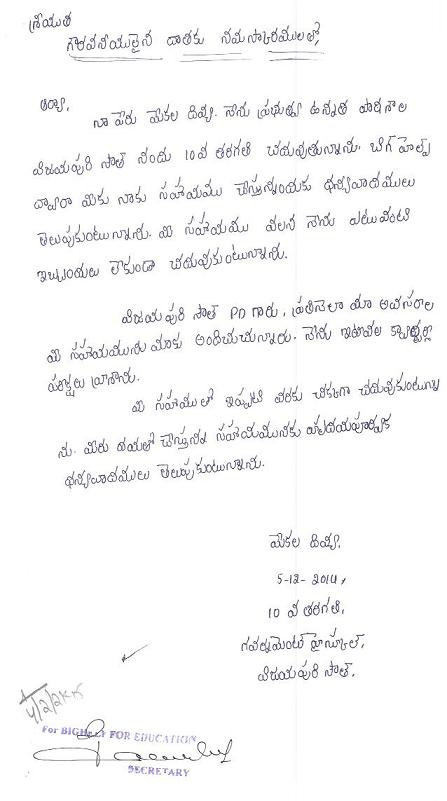 శ్రీయుత
గౌరవనీయులైన దాతకు నమస్కారములతో,
ఆర్యా,
నా పేరు మేకల దివ్య. నేను ప్రభుత్వ ఉన్నత పాఠశాల
విజయపురి సౌత్ నందు 10వ తరగతి చదువుతున్నాను. బిగ్ హెల్ప్
ద్వారా మీరు నాకు సహాయము చేస్తున్నందుకు ధన్యవాదములు
తెలుపుకుంటున్నాను. మీ సహాయము వలన నేను ఎటువంటి
ఇబ్బందులు లేకుండా చదువుకుంటున్నాను.
విజయపురి సౌత్ PD గారు, ప్రతినెలా మా అవసరాల
మీ సహాయమును మాకు అందించుచున్నారు. నేను ఇటీవల క్వార్టర్లీ
పరీక్షలు వ్రాశాను.
మీ సహాయంతో ఇప్పటి వరకు చక్కగా చదువుకుంటున్నా
ను. మీరు దయతో చేస్తున్న సహాయమునకు హృదయపూర్వక
ధన్యవాదములు తెలుపుకుంటున్నాను.
మేకల దివ్య.
5-12-2014,
10 వ తరగతి,
గవర్నమెంట్ హైస్కూల్,
విజయపురి సౌత్.
For BIGHELP FOR EDUCATION
SECRETARY